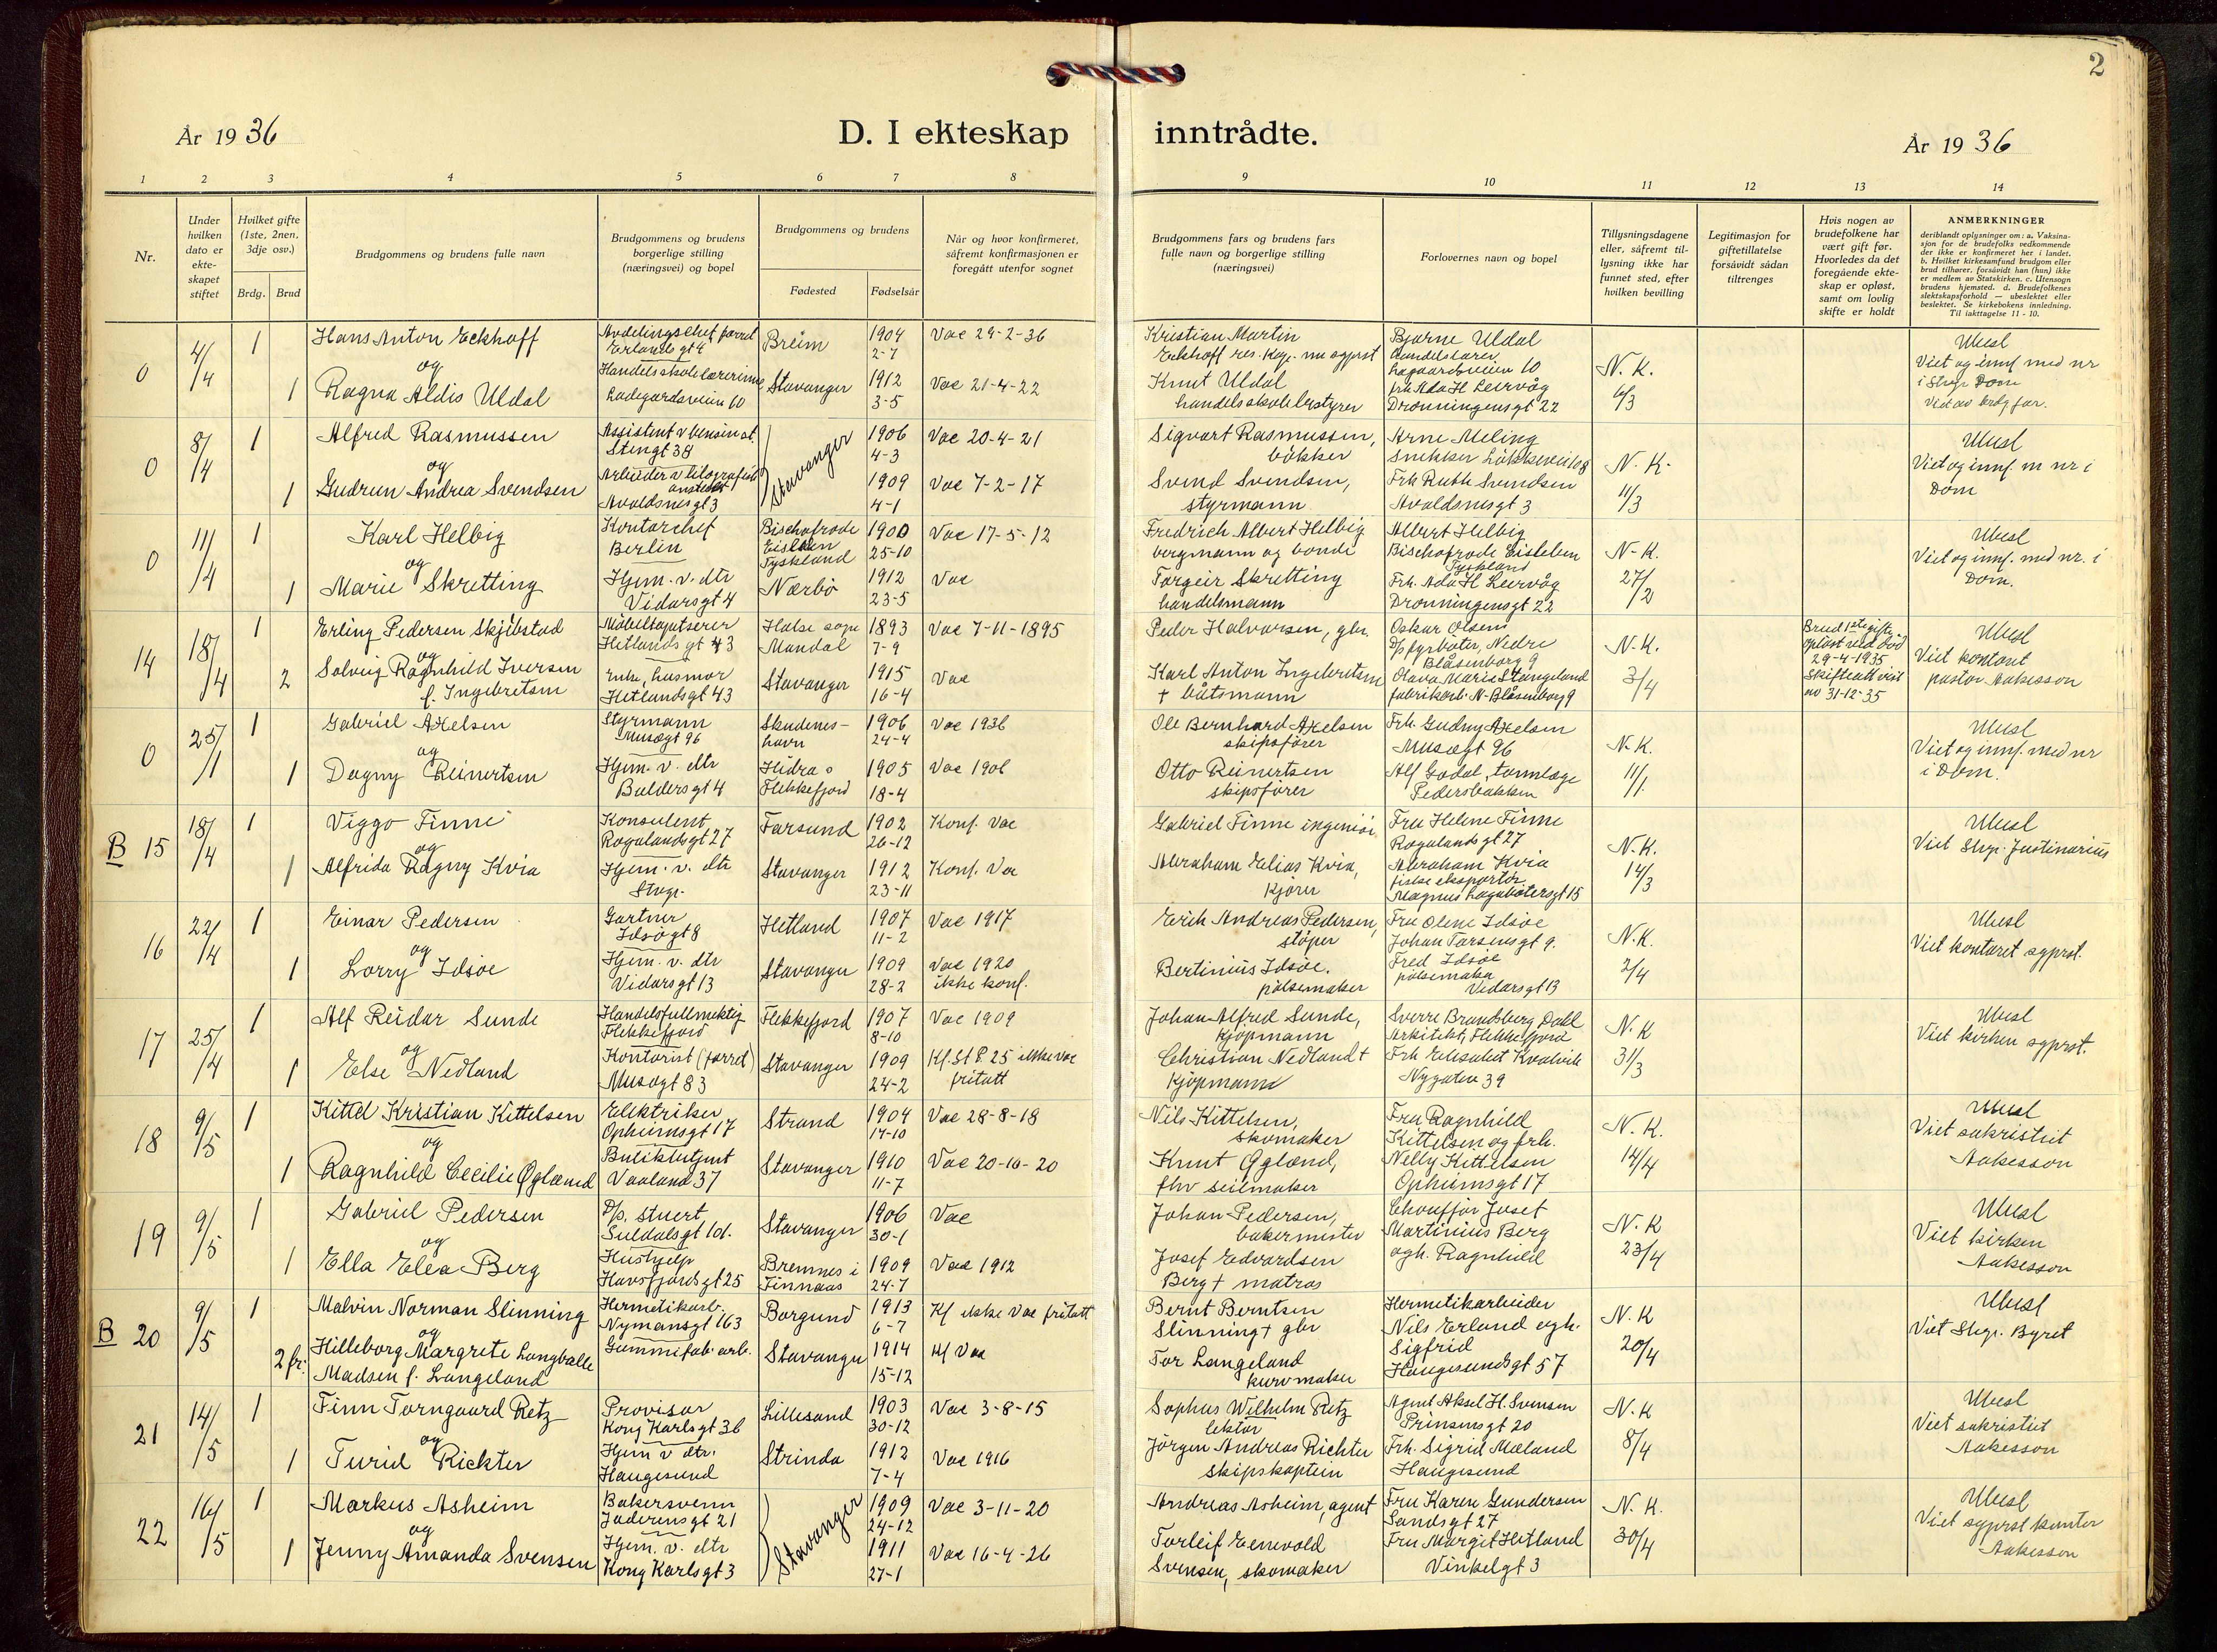 2
År 1936
D. I ekteskap inntrådte.
År 1936
1 2 3 4 5 6 7 8 9 10 11 12 13 14
Nr.
Under hvilken dato er ekte-skapet stiftet
Hvilket gifte (1ste, 2nen, 3dje osv.)
Brdg. Brud
Brudgommens og brudens fulle navn
Brudgommens og brudens borgerlige stilling (næringsvei) og bopel
Brudgommens og brudens
Fødested Fødselsår
Når og hvor konfirmeret, såfremt konfirmasjonen er foregått utenfor sognet
Brudgommens fars og brudens fars fulle navn og borgerlige stilling (næringsvei)
Forlovernes navn og bopel
Tillysningsdagene eller, såfremt til-lysning ikke har funnet sted, efter hvilken bevilling
Legitimasjon for giftetillatelse forsåvidt sådan tiltrenges
Hvis nogen av brudefolkene har vært gift før. Hvorledes da det foregående ekte-skap er opløst, samt om lovlig skifte er holdt
ANMERKNINGER
deriblandt oplysninger om: a. Vaksina-sjon for de brudefolks vedkommende der ikke er konfirmeret her i landet. b. Hvilket kirkesamfund brudgom eller brud tilhører, forsåvidt han (hun) ikke er medlem av Statskirken. c. Utensogn brudens hjemsted. d. Brudefolkenes slektskapsforhold — ubeslektet eller beslektet. Se kirkebokens innledning. Til iakttagelse 11 - 10.
0 4/4 1 Hans Anton Eckhoff Avdelingschef forret Erlands gt 4 Breim 1904 2-7 Vac 29-2-36 Kristian Martin Eckhoff res. kap. nu sgprst Bjarne Uldal handelslærer Lagaardsveien 10 N. K. 6/3 Ubesl Viet og innf. med nr i Stvgr Dom Vid av brdg far.
og
1 Ragna Aldis Uldal Handelsskolelærerinne Ladegaardsveien 10 Stavanger 1912 3-5 Vac 21-4-22 Knut Uldal handelsskolebestyrer frk Ada H Leervåg Dronningensgt 22
0 8/4 1 Alfred Rasmussen Assistent v bensin st. Stengt 38 Stavanger 1906 4-3 Vac 20-4-21 Sigvart Rasmussen, bøkker Arne Meling Snekker Løkkevei 108 N. K. 11/3 Ubesl Viet og innf m nr i Dom
og
1 Gudrun Andrea Svendsen Arbeider v litografisk anstalt Avaldsnesgt 3 1909 4-1 Vac 7-2-17 Svend Svendsen, styrmann Frk Ruth Svendsen Avaldsnesgt 3
0 11/4 1 Karl Helbig Kontorchef Berlin Bischofrode Eisleben Tyskland 1900 25-10 Vac 17-5-12 Fredrich Albert Helbig bergmann og bonde Albert Helbig Bischofrode Eisleben Tyskland N-K. 27/2 Ubesl Viet og innf. med nr. i Dom.
og
1 Marie Skretting Hjem. v. dtr Vidarsgt 4 Nærbø 1912 23-5 Vac Torgeir Skretting handelsmann Frk. Ada H Leervåg Dronningensgt 22
14 18/4 1 Erling Pedersen Skjebstad Møbeltapetserer Hetlands gt 43 Halse sogn Mandal 1893 7-9 Vac 7-11-1895 Peder Halvorsen, gbr. Oskar Olsen D/p fyrbøter, Nedre Blåsenborg 9 N-K. 3/4 Brud 1ste gifte opløst ved død 29-4-1935 Skifteatt vist av 31-12-35 Ubesl Viet kontoret pastor Aakesson
og
2 Solveig Ragnhild Iversen f. Ingebretsen Enke, husmor Hetlandsgt 43 Stavanger 1915 16-4 Vac Karl Anton Ingebretsen + båtsmann Olava Marie Stangeland fabrikarb. N-Blåsenborg 9
0 25/1 1 Gabriel Axelsen Styrmann Musegt 96 Skudenes-havn 1906 24-4 Vac 1936 Ole Bernhard Axelsen skipsfører Frk. Gudny Axelsen Musegt 96 N-K. 11/1. Ubesl Viet og innf. med nr i Dom.
og
1 Dagny Reinertsen Hjem. v. dtr Baldersgt 4 Hidra Flekkefjord 1905 18-4 Vac 1906 Otto Reinertsen skipsfører Alf Godal, tannlæge Pedersbakken
B 15 18/4 1 Viggo Finne Konsulent Rogalandsgt 27 Farsund 1902 26-12 Konf. Vac Gabriel Finne ingeniør Fru Helene Finne Rogalandsgt 27 N. K. 14/3 Ubesl Viet Stvgr. Justinarius
og
1 Alfrida Ragny Kvia Hjem. v. dtr Stvgr. Stavanger 1912 23-11 Konf. Vac Abraham Elias Kvia, kjører Abraham Kvia fiske eksportør Magnus Lagabøtersgt 15
16 22/4 1 Einar Pedersen Gartner Idsøgt 8 Hetland 1907 11-2 Vac 1917 Erich Andreas Pedersen, støper Fru Olene Idsøe Johan Torsensgt 9. N. K. 2/4 Ubesl Viet kontoret sgprst.
og
1 Lorry Idsøe Hjem. v. dtr Vidarsgt 13 Stavanger 1909 28-2 Vac 1920 ikke konf. Bertinius Idsøe. pølsemaker Fred Idsøe pølsemaker Vidarsgt 13
17 25/4 1 Alf Reidar Sunde Handelsfullmektig Flekkefjord Flekkefjord 1907 8-10 Vac 1909 Johan Alfred Sunde, kjøpmann Sverre Brandsberg Dahl Arkitekt, Flekkefjord N. K 31/3 Ubesl Viet kirken sgprst.
og
1 Else Nedland Kontorist (forret) Musegt 83 Stavanger 1909 24-2 Kf. St P. 25 ikke vac fritatt Christian Nedland + kjøpmann Frk Elisabet Kvalvik Nygaten 39
18 9/5 1 Kittel Kristian Kittelsen Elektriker Opheimsgt 17 Strand 1904 17-10 Vac 28-8-18 Nils Kittelsen, skomaker Fru Ragnhild Kittelsen og frk. N. K. 14/4 Ubesl Viet sakristiet Aakesson
og
1 Ragnhild Cecilie Øglænd Butikbetjent Vaaland 37 Stavanger 1910 11-7 Vac 20-10-20 Knut Øglænd, fhv seilmaker Nelly Kittelsen Opheimsgt 17
19 9/5 1 Gabriel Pedersen D/p. stuert Suldalsgt 101. Stavanger 1906 30-1 Vac Johan Pedersen, bakermester Chauffør Josef Martinius Berg N. K 23/4 Ubesl Viet kirken Aakesson
og
1 Ella Elea Berg Hushjelp Havsfjordsgt 25 Bremnes i Finnaas 1909 24-7 Vac 1912 Josef Edvardsen Berg + matros ogh. Ragnhild
B 20 9/5 1 Malvin Norman Slinning Hermetikarb. Nymansgt 163 Borgund 1913 6-7 Kf ikke Vac fritatt Bernt Berntsen Slinning + gbr Hermetikarbeider Nils Erland ogh. N. K 20/4 Ubesl Viet Stvgr. Byret
og
2 fr. Hilleborg Margrete Langballe Madsen f. Langeland Gummifab. arb. Stavanger 1914 15-12 Kf Vac Tor Langeland kurvmaker Sigfrid Haugesundsgt 57
21 14/5 1 Finn Torngaard Retz Provisor Kong Karlsgt 36 Lillesand 1903 30-12 Vac 3-8-15 Sophus Wilhelm Retz lektor Agent Aksel H. Svensen Prinsensgt 20 N. K 8/4 Ubesl Viet sakristiet Aakesson
og
1 Turid Rickter Hjem v dtr. Haugesund Strinda 1912 7-4 Vac 1916 Jørgen Andreas Richter skipskaptein Frk. Sigrid Mæland Haugesund
22 16/5 1 Markus Asheim Bakersvenn Jaderensgt 21 Stavanger 1909 24-12 Vac 3-11-20 Andreas Asheim, agent Fru Karen Gundersen Sandsgt 27 N. K. 30/4 Ubesl Viet sgprst kontor Aakesson
og
1 Jenny Amanda Svensen Hjem. v. dtr Kong Karlsgt 3 1911 27-1 Vac 16-4-26 Torleif Enevold Svensen, skomaker Fru Margit Hetland Vinkelgt 3